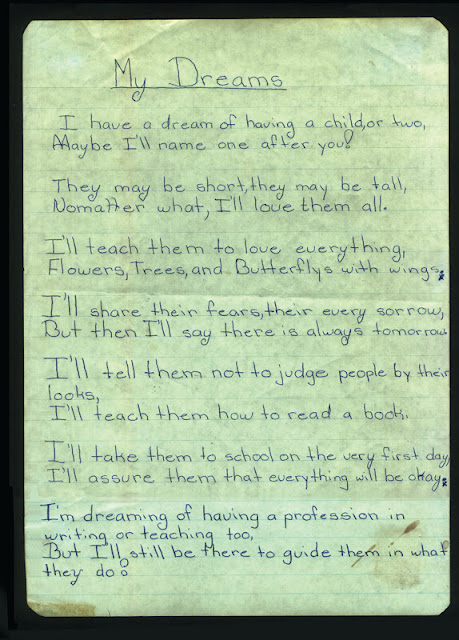 My Dreams
I have a dream of having a child, or two,
Maybe I'll name one after you!
They may be short, they may be tall,
Nomatter what, I'll love them all.
I'll teach them to love everything,
Flowers, Trees, and Butterflys with wings.
I'll share their fears, their every sorrow,
But then I'll say there is always tomorrow.
I'll tell them not to judge people by their
looks,
I'll teach them how to read a book.
I'll take them to school on the very first day,
I'll assure them that everything will be okay.
I'm dreaming of having a profession in
writing or teaching too,
But I'll still be there to guide them in what
they do!